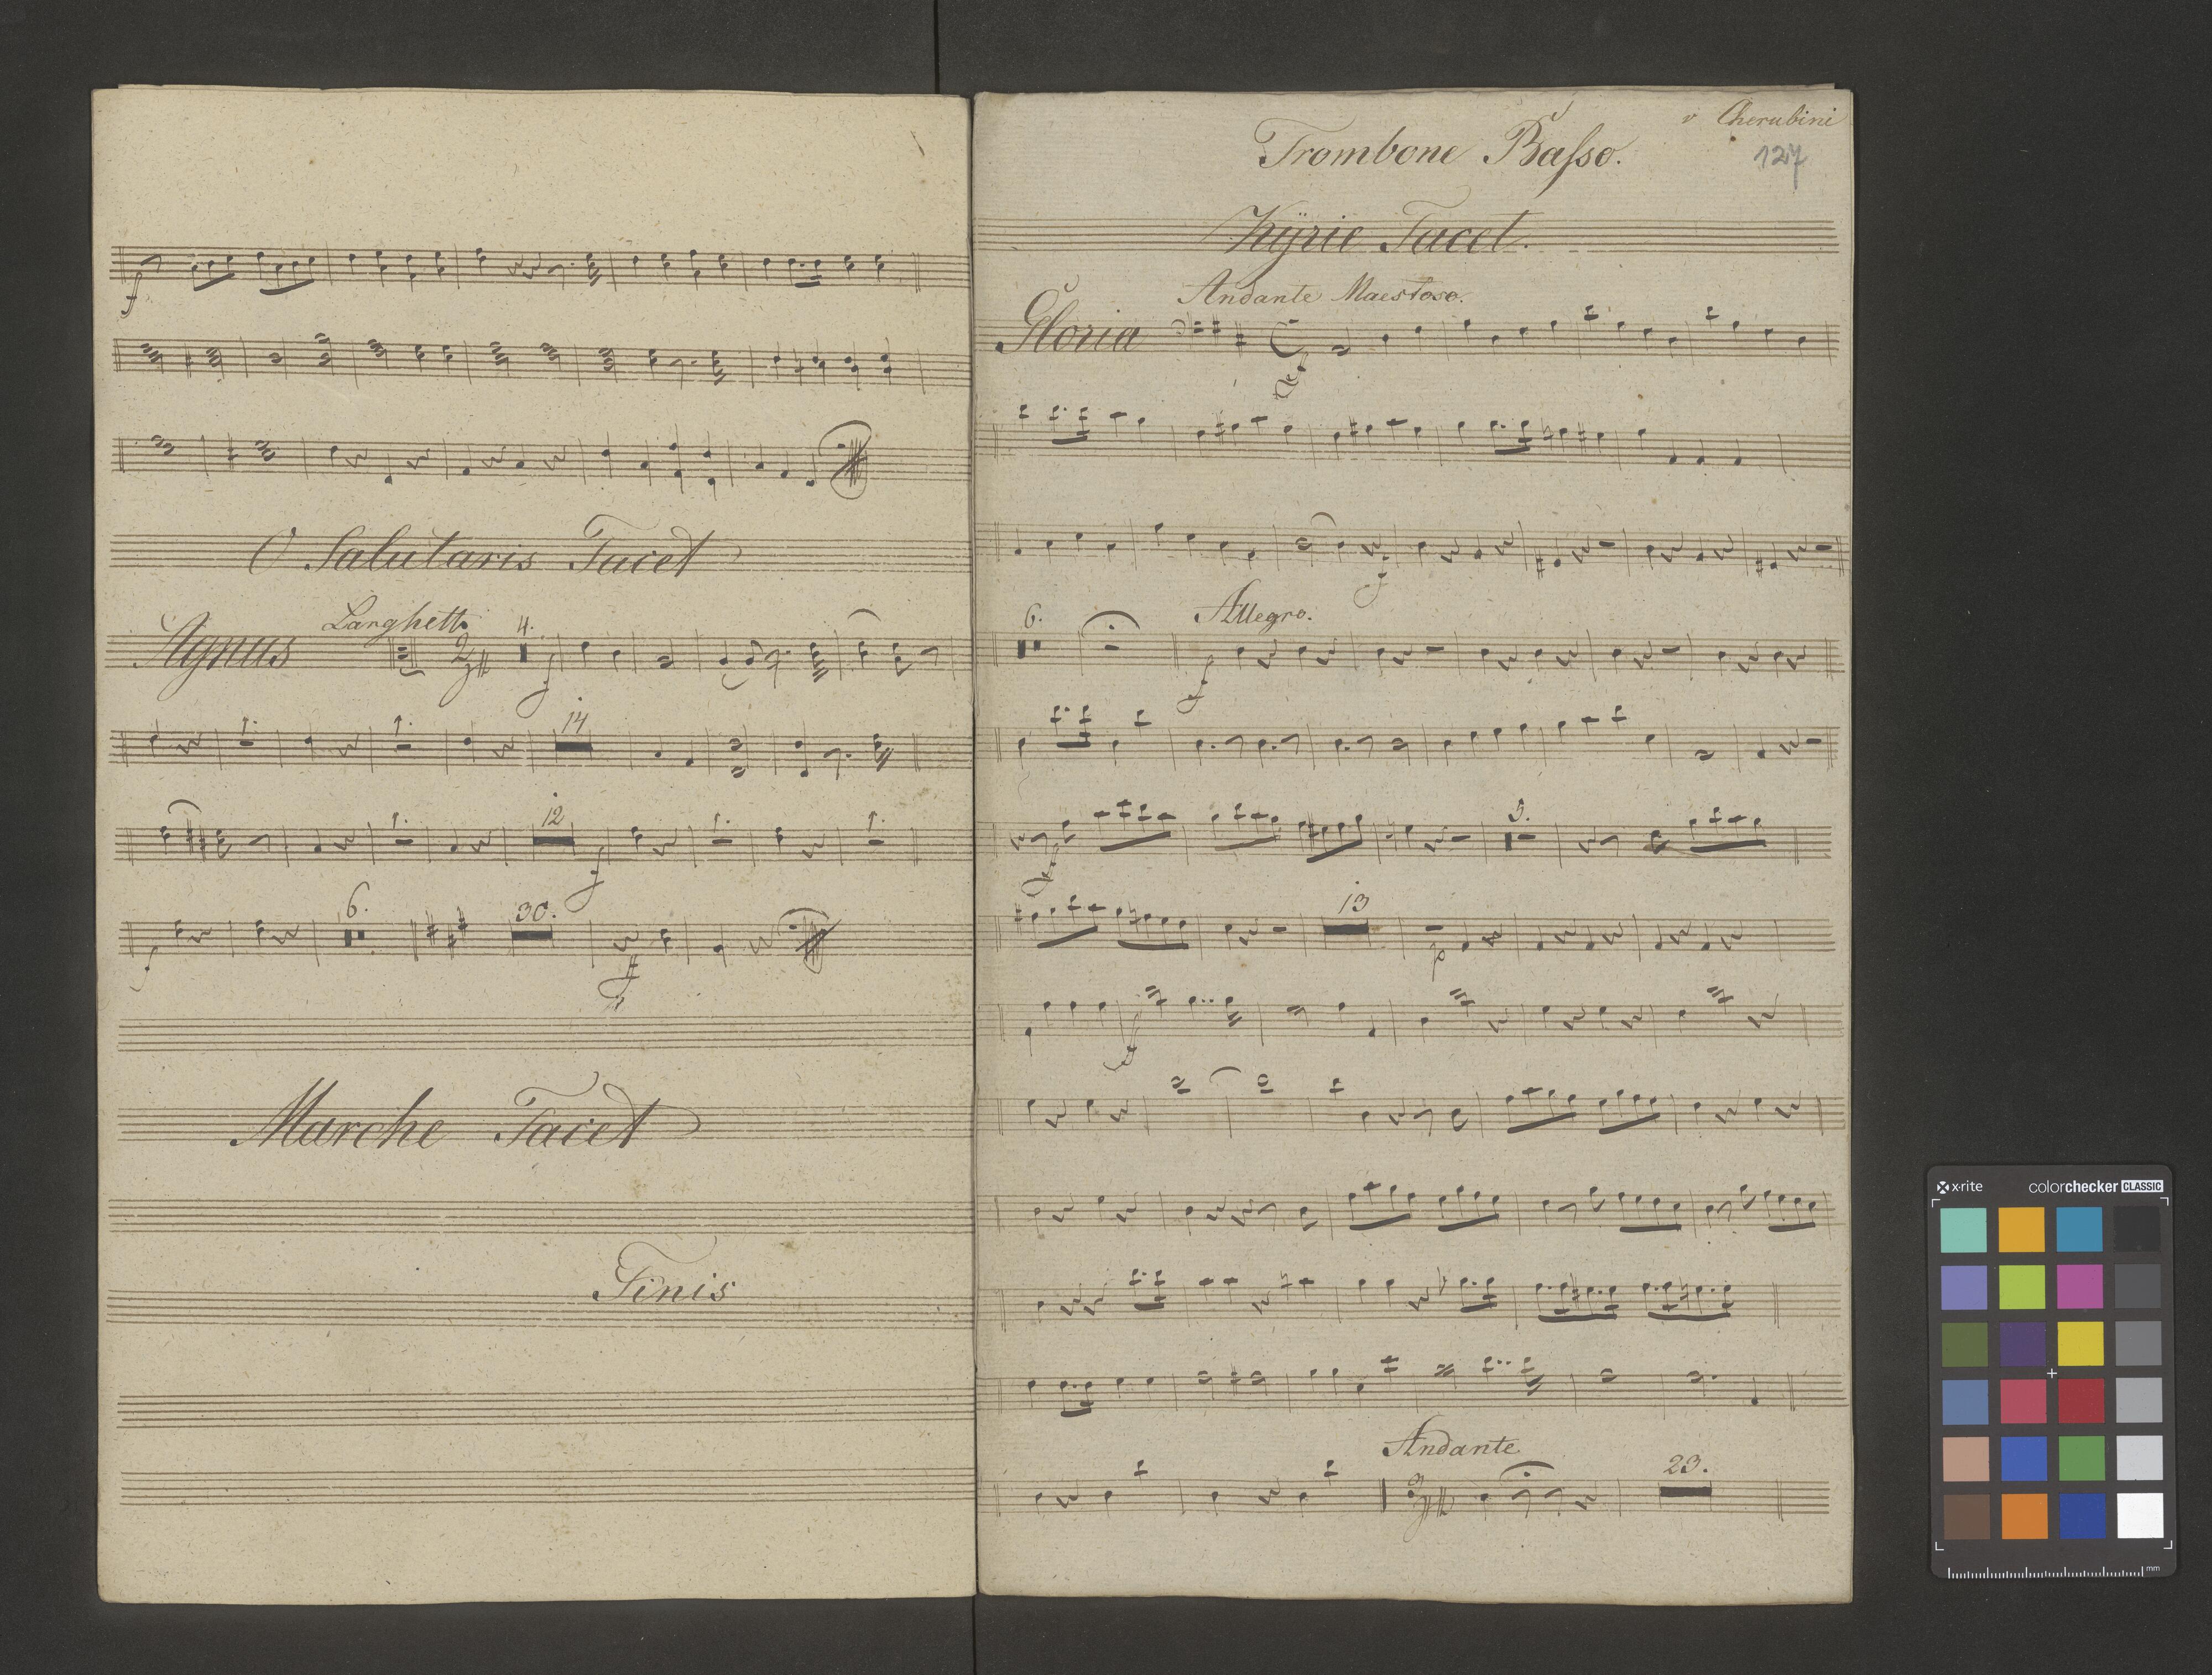 O Salutaris Tacet
Larghetto
Agnus
4.
1.
1.
14
1.
12
1.
1.
6.
30.
Marche Tacet
Finis
v Cherubini
Trombone Baſso.
127
Kÿrie Tacet.
Andante Maestoso.
Gloria
6.
Allegro.
5.
13
p
Andante
23.
x-rite colorchecker CLASSIC
mm